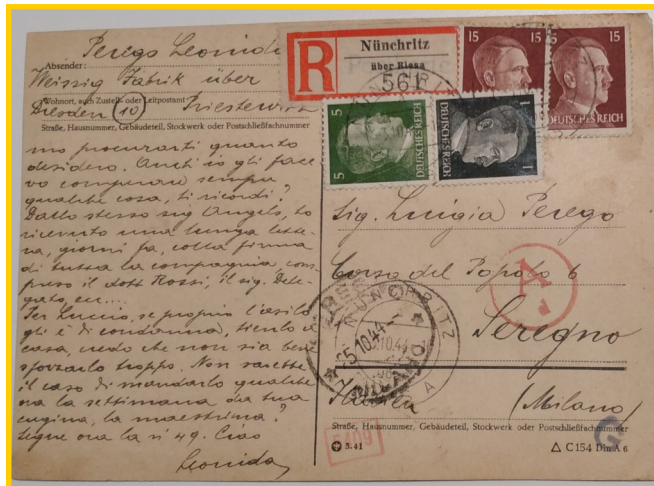 Absender:
Perego Leonida
Weissig Fabrik über
Wohnort, auch Zustell- oder Leitpostamt
Dresden (10) Priestewitz
Straße, Hausnummer, Gebäudeteil, Stockwerk oder Postschließfachnummer
mo procurarti quanto
desidero. Anch'io gli face
vo comperare sempre
qualche cosa, ti ricordi?
Dallo stesso sig Angelo, ho
ricevuto una lunga lette-
ra, giorni fa, colla firma
di tutta la compagnia, com-
preso il dott Rossi, il sig. Dele-
gato, ecc...
Per Luccio, se proprio l'asilo
gli è di condanna, tienlo a
casa, vedo che non sia ben
sforzarlo troppo. Non sarebbe
il caso di mandarlo qualche
ora la settimana da tua
cugina, la maestrina?
Segue ora la n° 49. Ciao
Leonida
R
Nünchritz
über Riesa
561
15
15
15
DEUTSCHES REICH
5
5
DEUTSCHES REICH
1
1
DEUTSCHES REICH
Sig. Luigia Perego
Corso del Popolo 6
Seregno
Italien (Milano)
Straße, Hausnummer, Gebäudeteil, Stockwerk oder Postschließfachnummer
A
NÜNCHRITZ
10.44
A
25.10.44
MILANO
5409
5.41
C 154 Din A 6